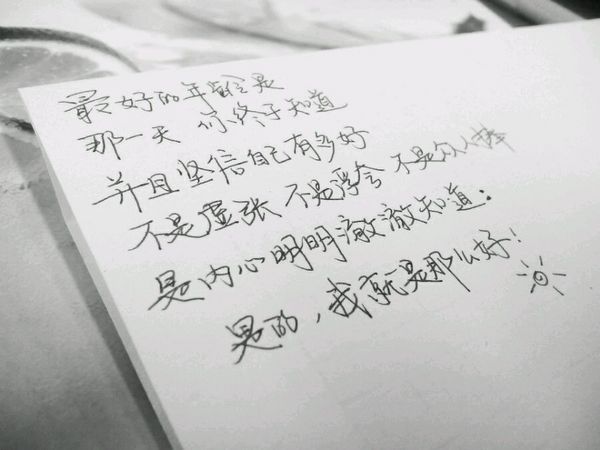 最好的年龄是
那一天 你终于知道
并且坚信自己有多好
不是虚张 不是浮夸 不是众人捧
是内心明明澈澈知道：
是的，我就是那么好！